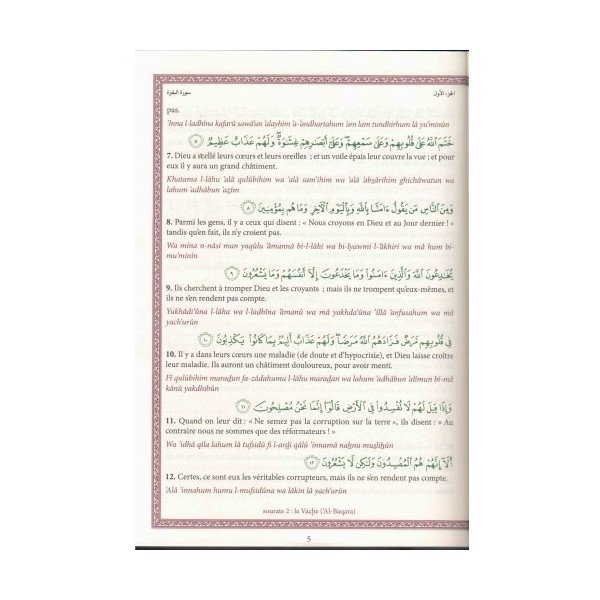 سورة البقرة الجزء الأول
pas.
'Inna l-ladhîna kafarû sawâ'un 'alayhim 'a-'andhartahum 'am lam tundhirhum lâ yu'minûn
خَتَمَ اللَّهُ عَلَىٰ قُلُوبِهِمْ وَعَلَىٰ سَمْعِهِمْ ۖ وَعَلَىٰ أَبْصَـٰرِهِمْ غِشَـٰوَةٌ ۖ وَلَهُمْ عَذَابٌ عَظِيمٌ ٧
7. Dieu a scellé leurs cœurs et leurs oreilles ; et un voile épais leur couvre la vue ; et pour
eux il y aura un grand châtiment.
Khatama l-lâhu 'alâ qulûbihim wa 'alâ sam'ihim wa 'alâ 'abṣârihim ghichâwatun wa
lahum 'adhâbun 'aẓîm
وَمِنَ النَّاسِ مَن يَقُولُ ءَامَنَّا بِاللَّهِ وَبِالْيَوْمِ الْآخِرِ وَمَا هُم بِمُؤْمِنِينَ ٨
8. Parmi les gens, il y a ceux qui disent : « Nous croyons en Dieu et au Jour dernier ! »
tandis qu'en fait, ils n'y croient pas.
Wa mina n-nâsi man yaqûlu 'âmannâ bi-l-lâhi wa bi-lyawmi l-'âkhiri wa mâ hum bi-
mu'minîn
يُخَـٰدِعُونَ اللَّهَ وَالَّذِينَ ءَامَنُوا وَمَا يَخْدَعُونَ إِلَّا أَنفُسَهُمْ وَمَا يَشْعُرُونَ ٩
9. Ils cherchent à tromper Dieu et les croyants ; mais ils ne trompent qu'eux-mêmes, et
ils ne s'en rendent pas compte.
Yukhâdi'ûna l-lâha wa l-ladhîna 'âmanû wa mâ yakhda'ûna 'illâ 'anfusahum wa mâ
yach'urûn
فِي قُلُوبِهِم مَّرَضٌ فَزَادَهُمُ اللَّهُ مَرَضًا ۖ وَلَهُمْ عَذَابٌ أَلِيمٌ بِمَا كَانُوا يَكْذِبُونَ ١٠
10. Il y a dans leurs cœurs une maladie (de doute et d'hypocrisie), et Dieu laisse croître
leur maladie. Ils auront un châtiment douloureux, pour avoir menti.
Fî qulûbihim maraḍun fa-zâdahumu l-lâhu maraḍan wa lahum 'adhâbun 'alîmun bi-mâ
kânû yakdhibûn
وَإِذَا قِيلَ لَهُمْ لَا تُفْسِدُوا فِي الْأَرْضِ قَالُوا إِنَّمَا نَحْنُ مُصْلِحُونَ ١١
11. Quand on leur dit : « Ne semez pas la corruption sur la terre », ils disent : « Au
contraire nous ne sommes que des réformateurs ! »
Wa 'idhâ qîla lahum lâ tufsidû fi l-arḍi qâlû 'innamâ naḥnu muṣliḥûn
أَلَا إِنَّهُمْ هُمُ الْمُفْسِدُونَ وَلَـٰكِن لَّا يَشْعُرُونَ ١٢
12. Certes, ce sont eux les véritables corrupteurs, mais ils ne s'en rendent pas compte.
'Alâ 'innahum humu l-mufsidûna wa lâkin lâ yach'urûn
sourate 2 : la Vache ('Al-Baqara)
5